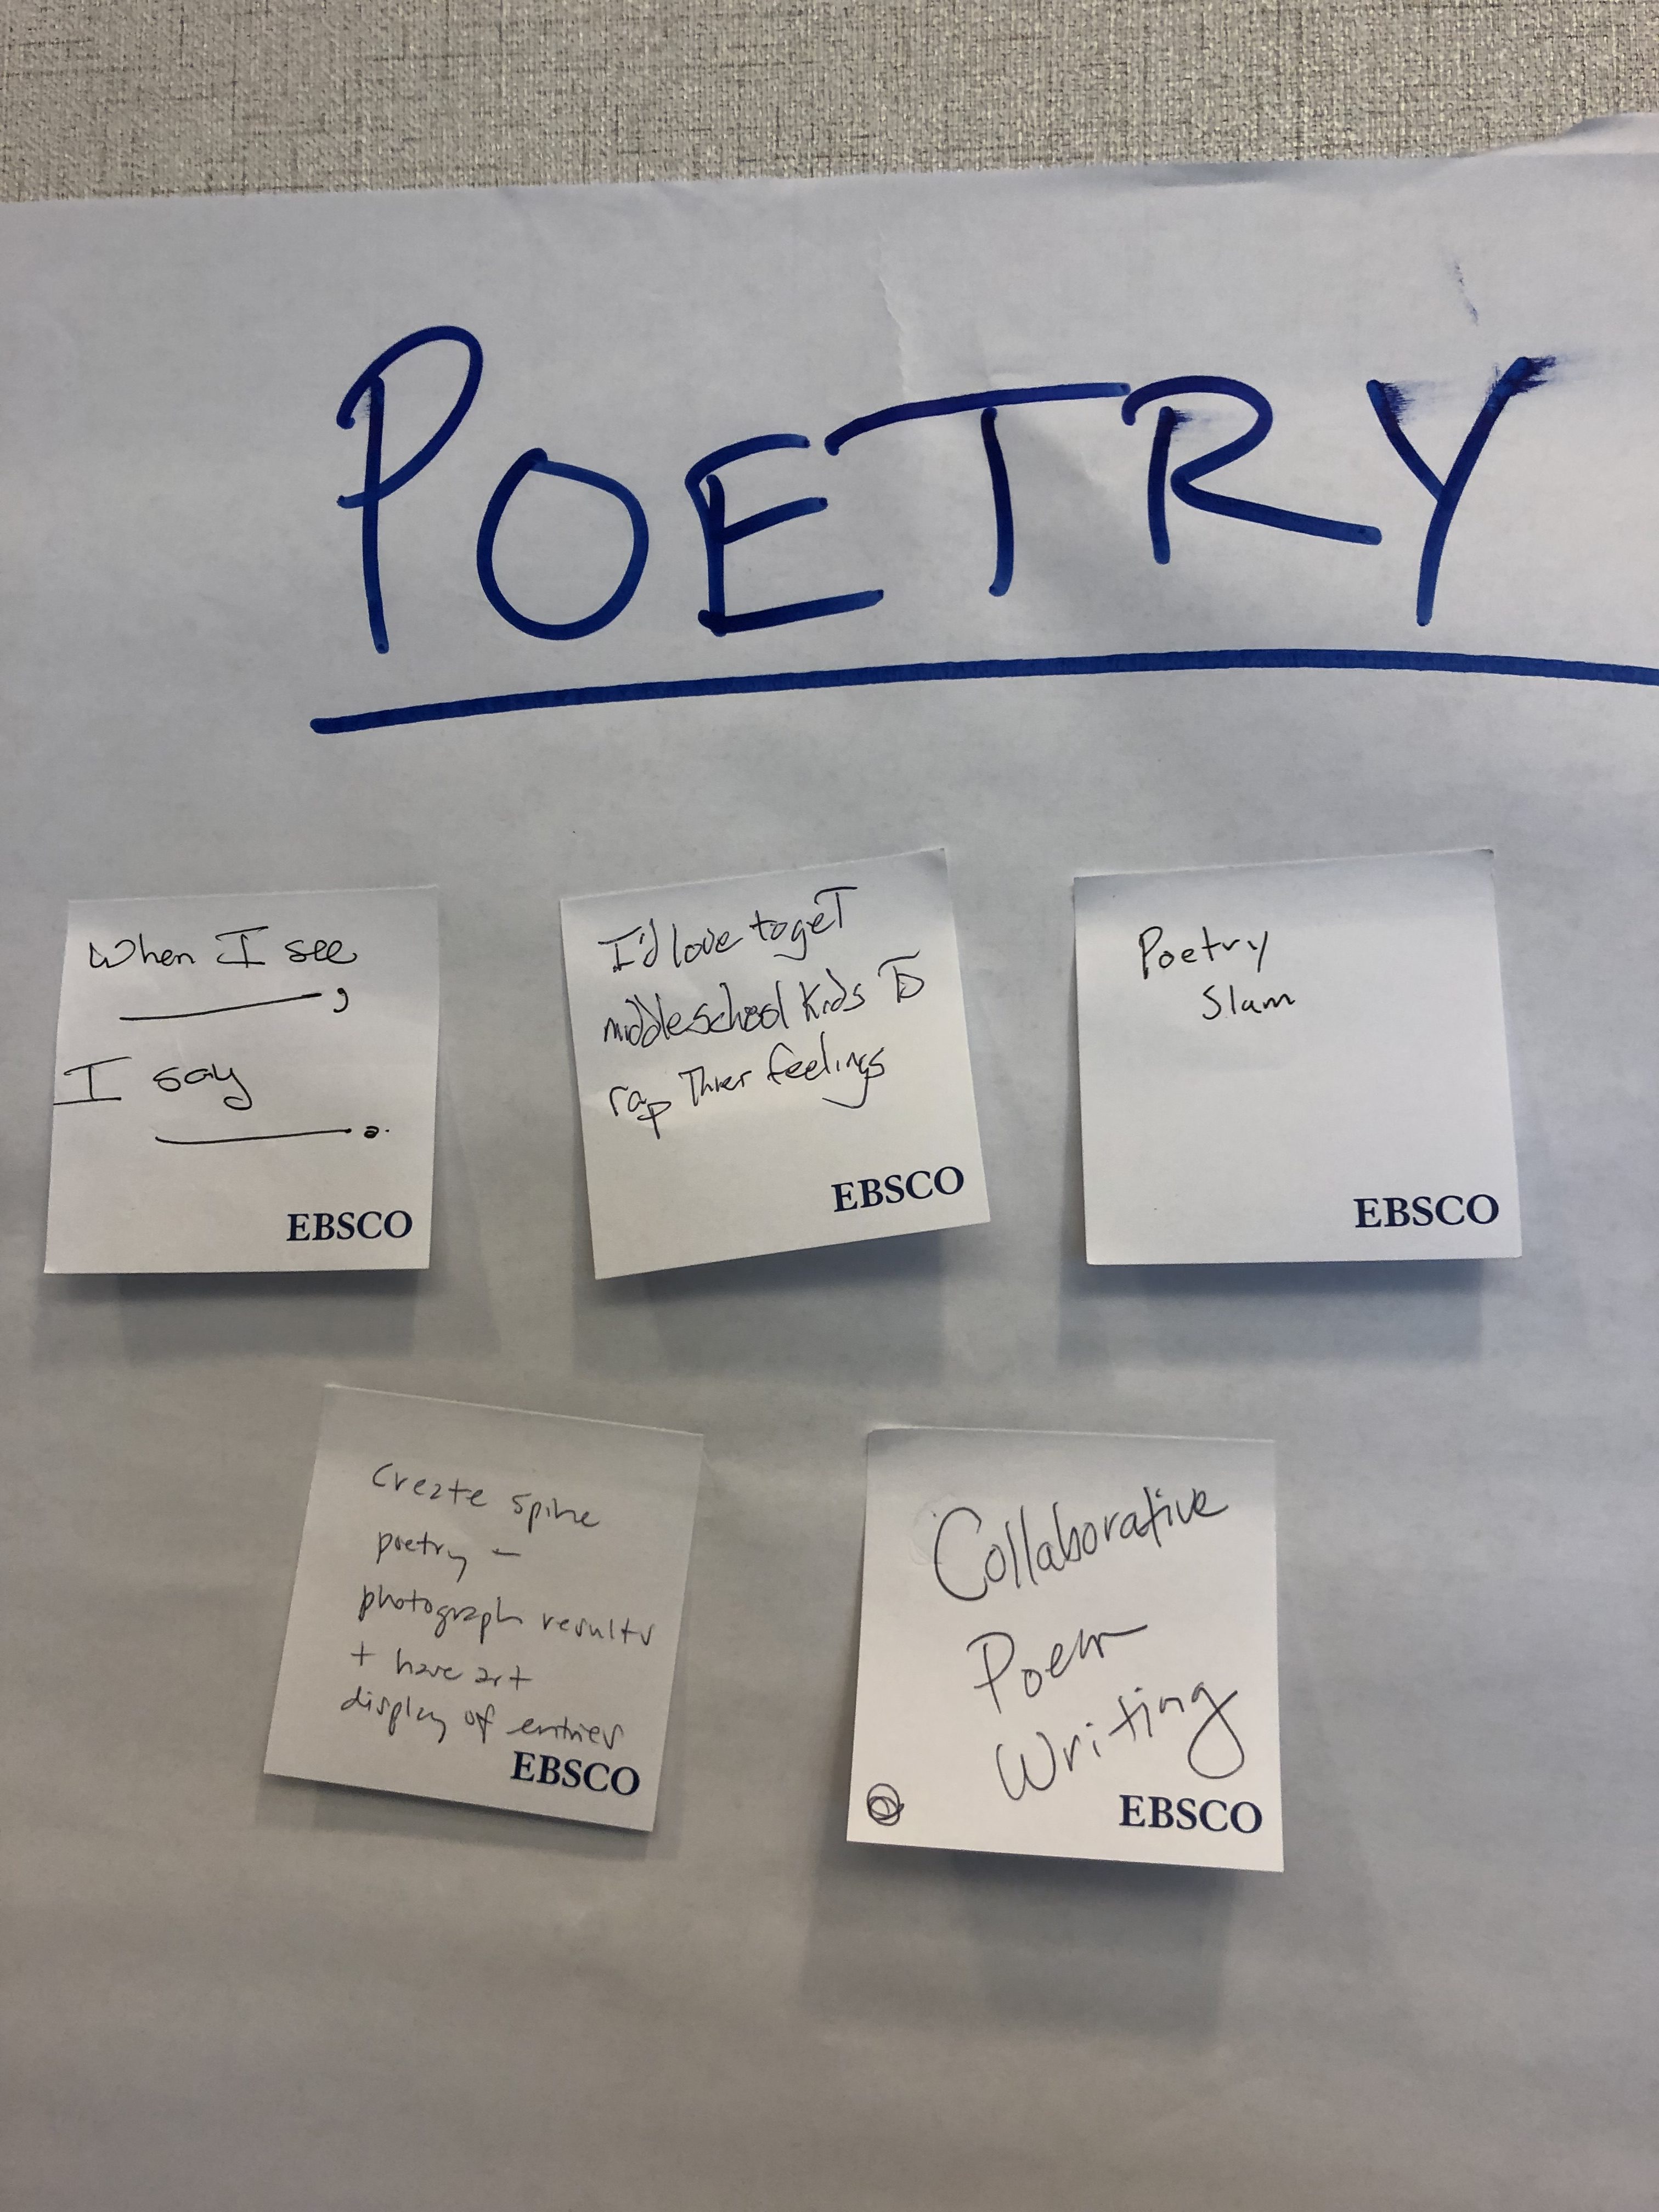 POETRY
When I see
______,
I say
______.
EBSCO
I'd love to geT
middle school Kids To
rap Thier feelings
EBSCO
Poetry
Slam
EBSCO
Create spine
poetry –
photograph results
+ have art
display of entries
EBSCO
Collaborative
Poem
Writing
EBSCO